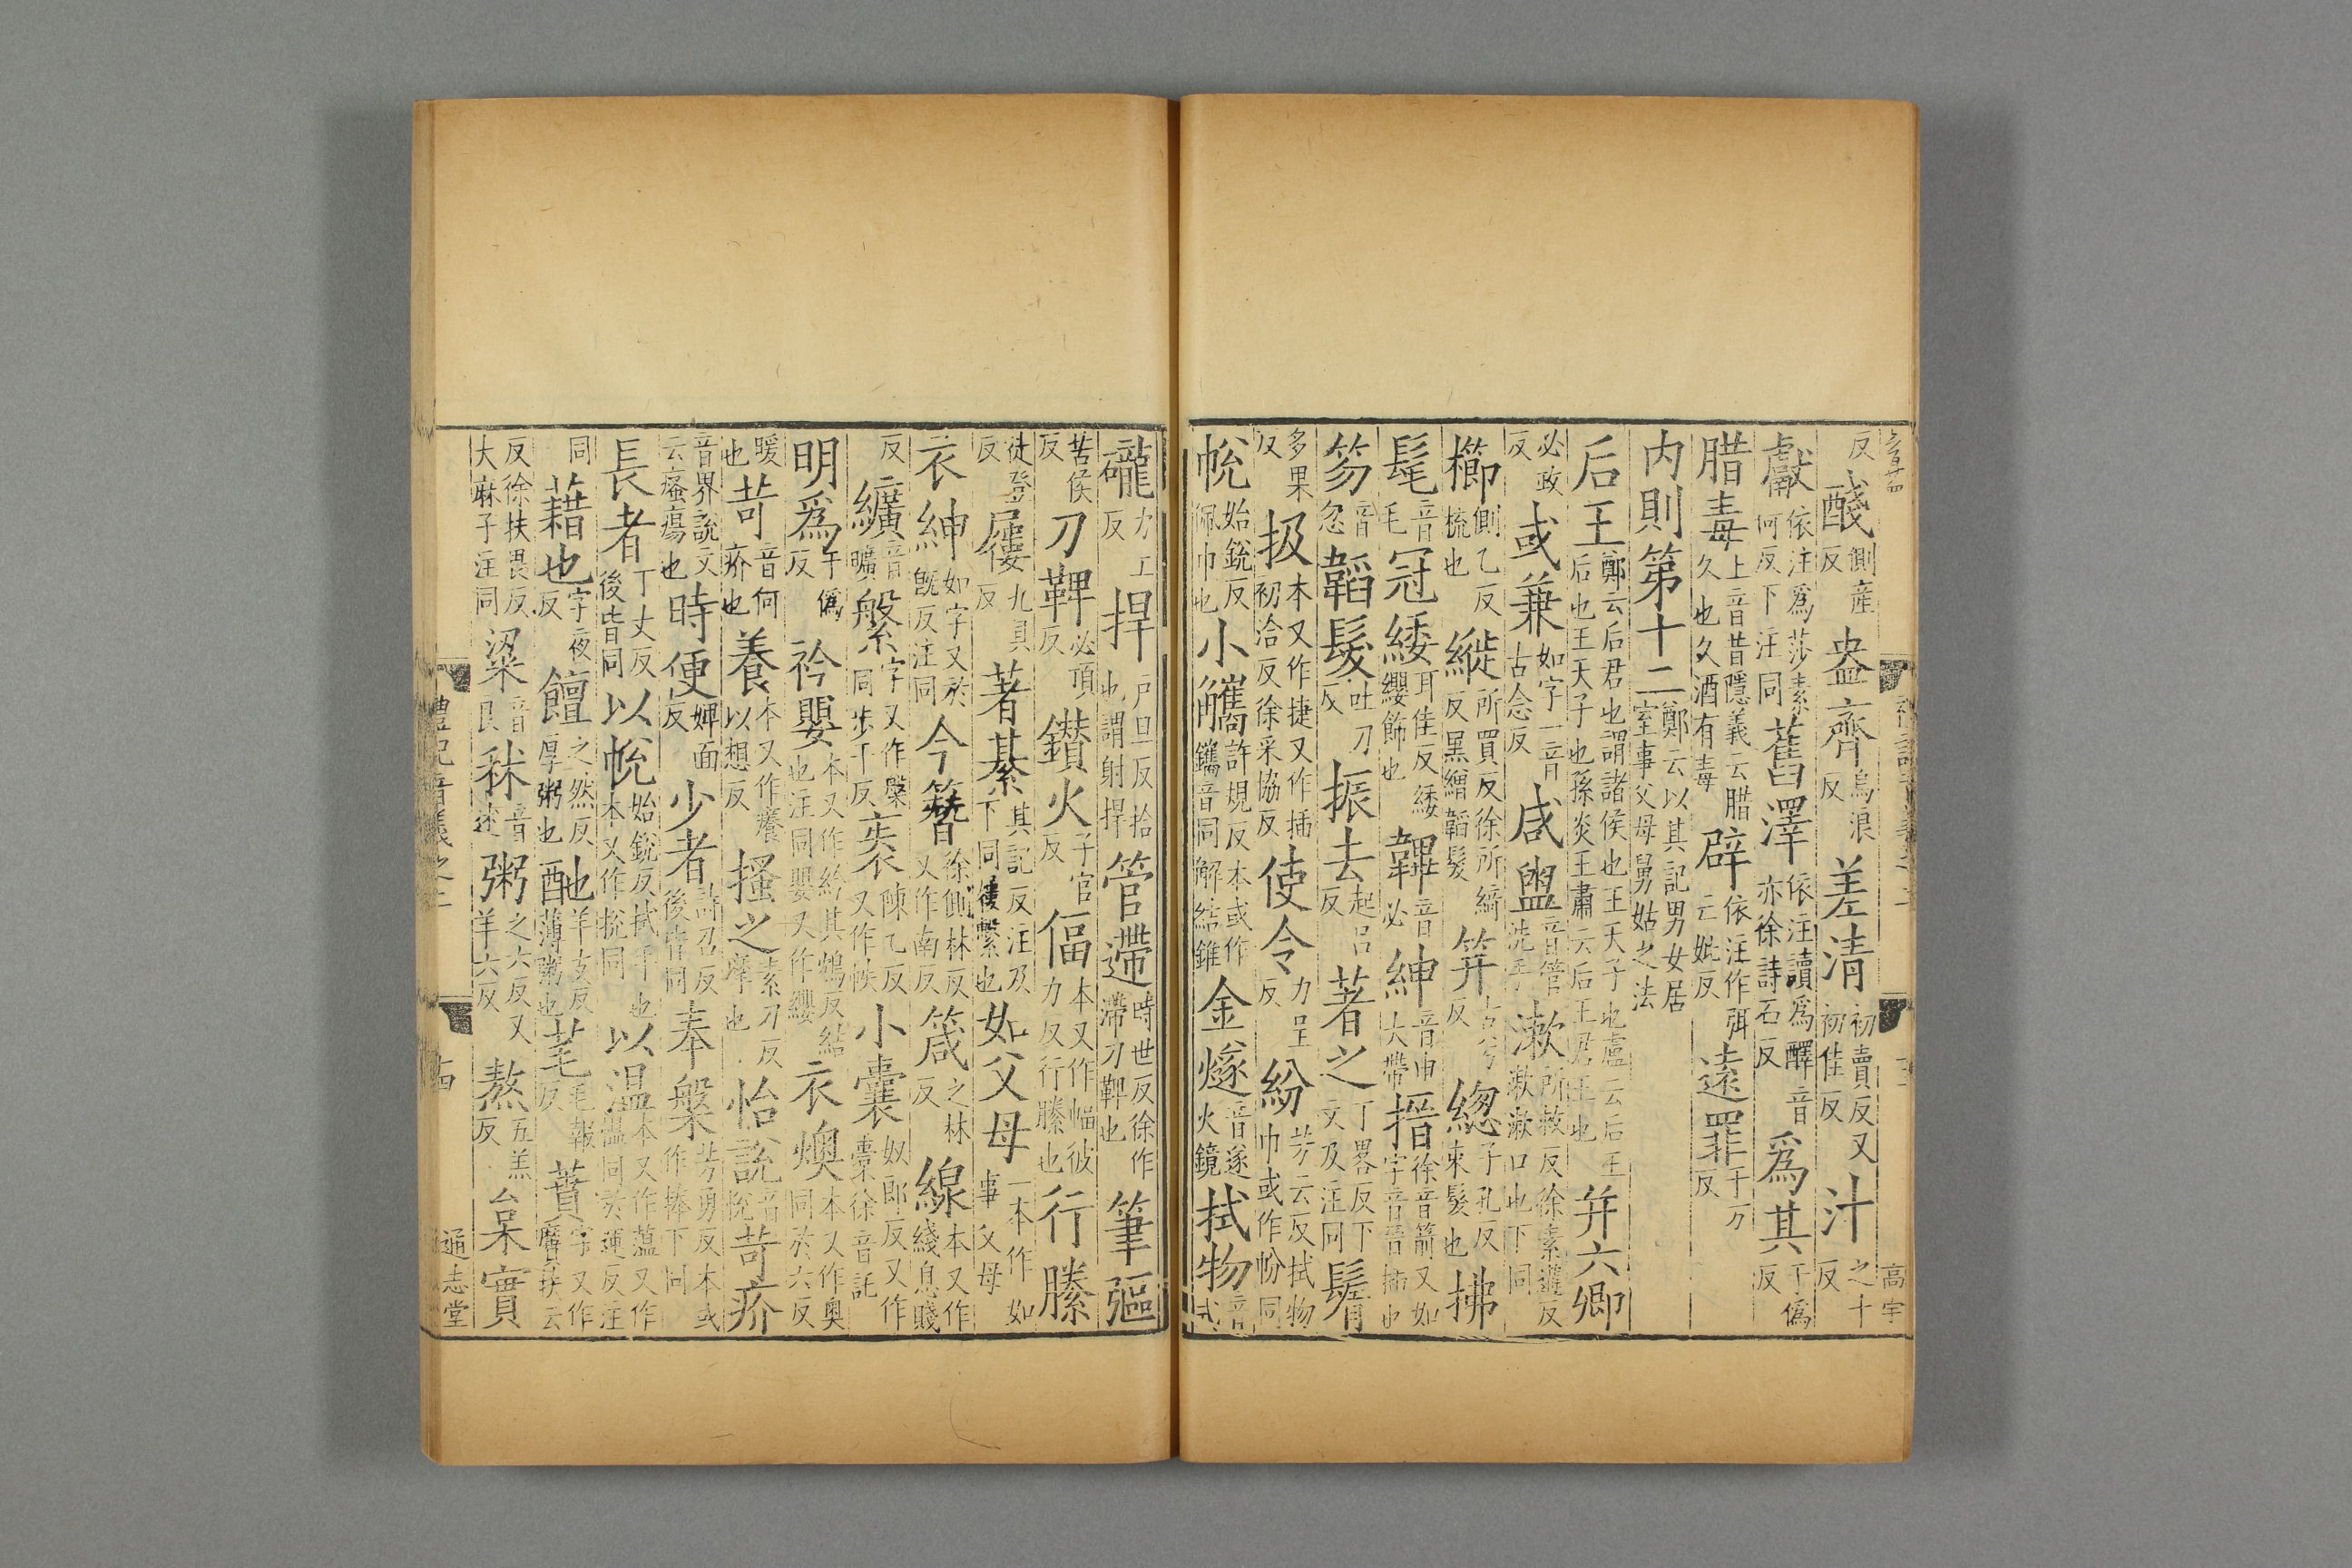 反醆側産反盎齊烏浪反差清初賣反又初佳反汁之十反
獻依注爲莎素何反下注同舊澤依注讀爲醳音亦徐詩石反爲其于僞反
腊毒上音昔隱義云腊久也久酒有毒辟依注作弭亡婢反遠罪于万反
内則第十二鄭云以其記男女居室事父母舅姑之法
后王鄭云后君也謂諸侯也王天子也盧云后王后也王天子也孫炎王肅云后王君王也并六卿
必政反或兼如字一音古念反咸盥音管洗手漱所救反徐素遘反漱漱口也下同
櫛側乙反梳也縰所買反徐所綺反黑繒韜髮笄古兮反緫子孔反束髮也拂
髦音毛冠緌耳佳反緌纓飾也韠音必紳音申大帶搢徐音箭又如字音晉插也
笏音忽韜髮吐刀反振去起吕反著之丁畧反下文及注同鬌
多果反扱本又作捷又作插初洽反徐采協反使令力呈反紛芳云反拭物巾或作帉同
帨始銳反佩巾也小觿許規反本或作鑴音同解結錐金燧音遂火鏡拭物音式
礲力工反捍戸旦反拾也謂射捍管遰時世反徐作滯刀鞞也筆彄
苦侯反刀鞞必頂反鑚火子官反偪本又作幅彼力反行縢也行縢
徒登反屨九具反著綦其記反注及下同屨繫也如父母一本作如事父母
衣紳如字又於旣反注同今簪徐側林反又作南反箴之林反線本又作綫息賤
反纊音曠縏字又作鞶同步干反袠陳乙反又作帙小囊奴郎反又作橐徐音託
明爲于僞反衿嬰本又作紟其鴆反結也注同嬰又作纓衣燠本又作奥同於六反
暖也苛音何疥也養本又作癢以想反搔之素刀反摩也怡說音悅苛疥
音界説文云瘙瘍也時便婢面反少者詩召反後皆同奉槃芳勇反本或作捧下同
長者丁丈反後皆同以帨始銳反拭手也本又作挩同以温本又作薀又作愠同於運反注
同藉也字夜反饘之然反厚粥也酏羊支反薄粥也芼毛報反蕡字又作黂扶云
反徐扶畏反大麻子注同粱音良秫音述粥之六反又羊六反熬五羔反枲實
禮記音義之二
十四
通志堂
高宇